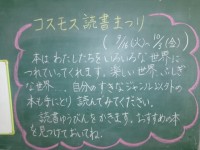 コスモス読書まつり
(9/16(火)~10/3(金))
本はわたしたちをいろいろな世界に
つれていってくれます。楽しい世界、ふしぎ
な世界…。自分のすきなジャンル以外の
本も手にとり読んでみてください。
読書ゆうびんをかきます。おすすめの本
を見つけておいてね。